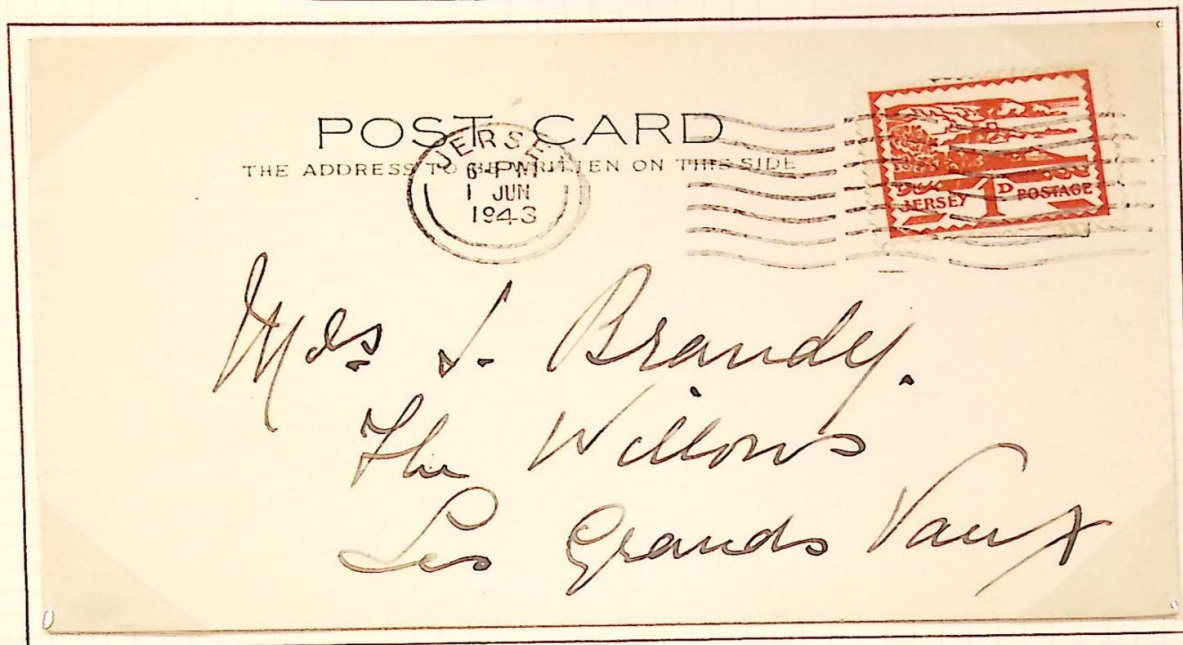 POST CARD
THE ADDRESS TO BE WRITTEN ON THIS SIDE
JERSEY
6-PM
1 JUN
1943
JERSEY 1D POSTAGE
Mrs J. Brandy.
The Willows
Les Grands Vaux